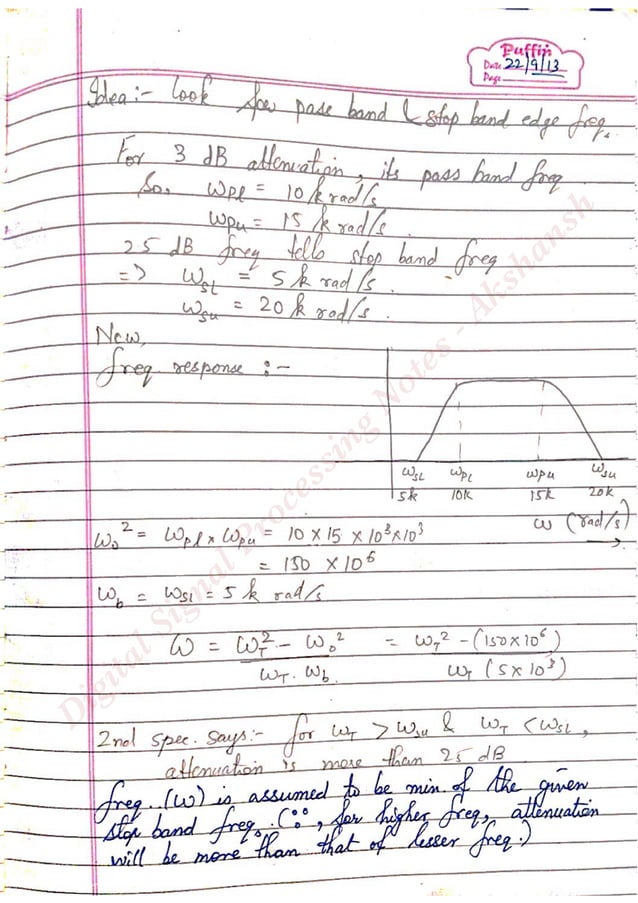 Puffin
Date 22/9/13
Page
Idea:- Look for pass band & stop band edge freq.
For 3 dB attenuation, its pass band freq
So, ωPl = 10 k rad/s
ωPu = 15 k rad/s.
25 dB freq tells stop band freq
=> ωSL = 5 k rad/s.
ωSu = 20 k rad/s.
Now,
freq. response :-
ωSL ωPL ωPu ωSu
5k 10k 15k 20k
ω (rad/s) →
ω₀² = ωPl × ωPu = 10 × 15 × 10³×10³
= 150 × 10⁶
ωb = ωSl = 5 k rad/s
ω = (ωT² - ω₀²) / (ωT. ωb.) = (ωT² - (150×10⁶)) / (ωT (5×10³))
2nd spec. says:- for ωT > ωSu & ωT < ωSL,
attenuation is more than 25 dB
freq. (ω) is assumed to be min. of the given
stop band freq. (∵, for higher freq, attenuation
will be more than that of lesser freq.)
Digital Signal Processing Notes - Akshansh